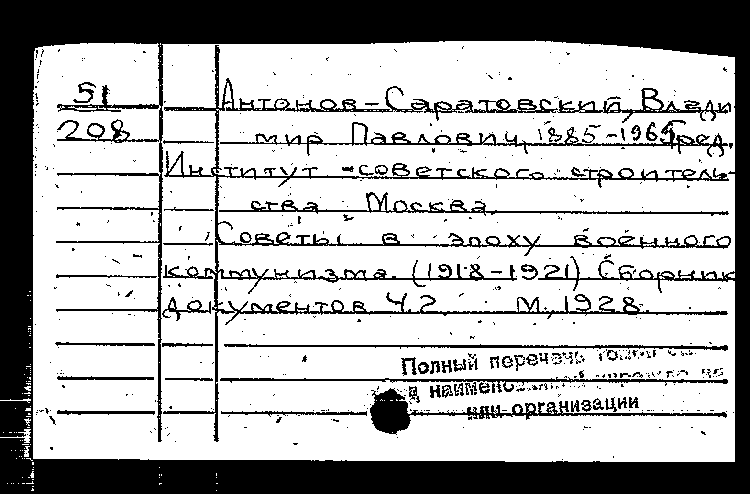 51 Антонов-Саратовский, Влади-
208 мир Павлович, 1885-1965, ред.
Институт советского строитель-
ства Москва.
Советы в эпоху военного
коммунизма. (1918-1921) Сборник
документов Ч.2 М., 1928.
Полный перечень
наименований
или организации